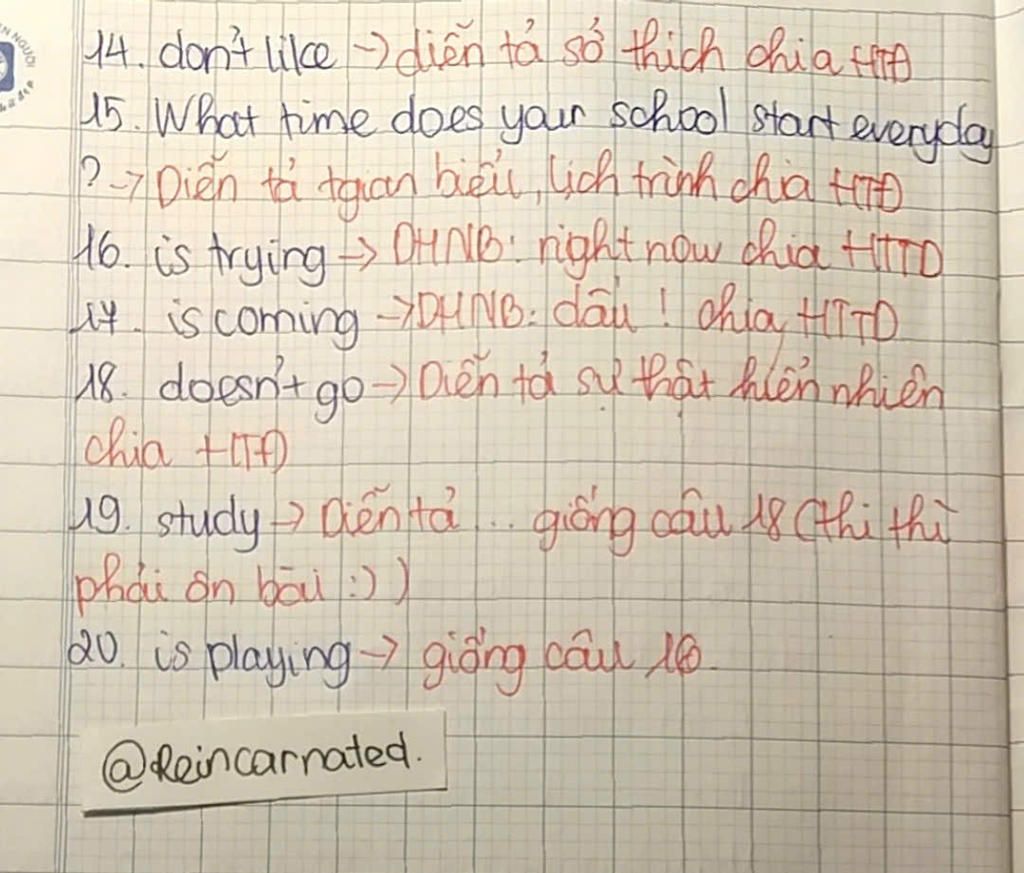 N NGƯỜI
14. don't like → diễn tả sở thích chia HTĐ
15. What time does your school start everyday
? → Diễn tả tgian biểu, lịch trình chia HTĐ
16. is trying → DHNB: right now chia HTTD
17. is coming → DHNB: dấu ! chia HTTD
18. doesn't go → Diễn tả sự thật hiển nhiên
chia HTĐ
19. study → Diễn tả ... giống câu 18 (thi thì
phải ôn bài :))
20. is playing → giống câu 16
@Reincarnated.